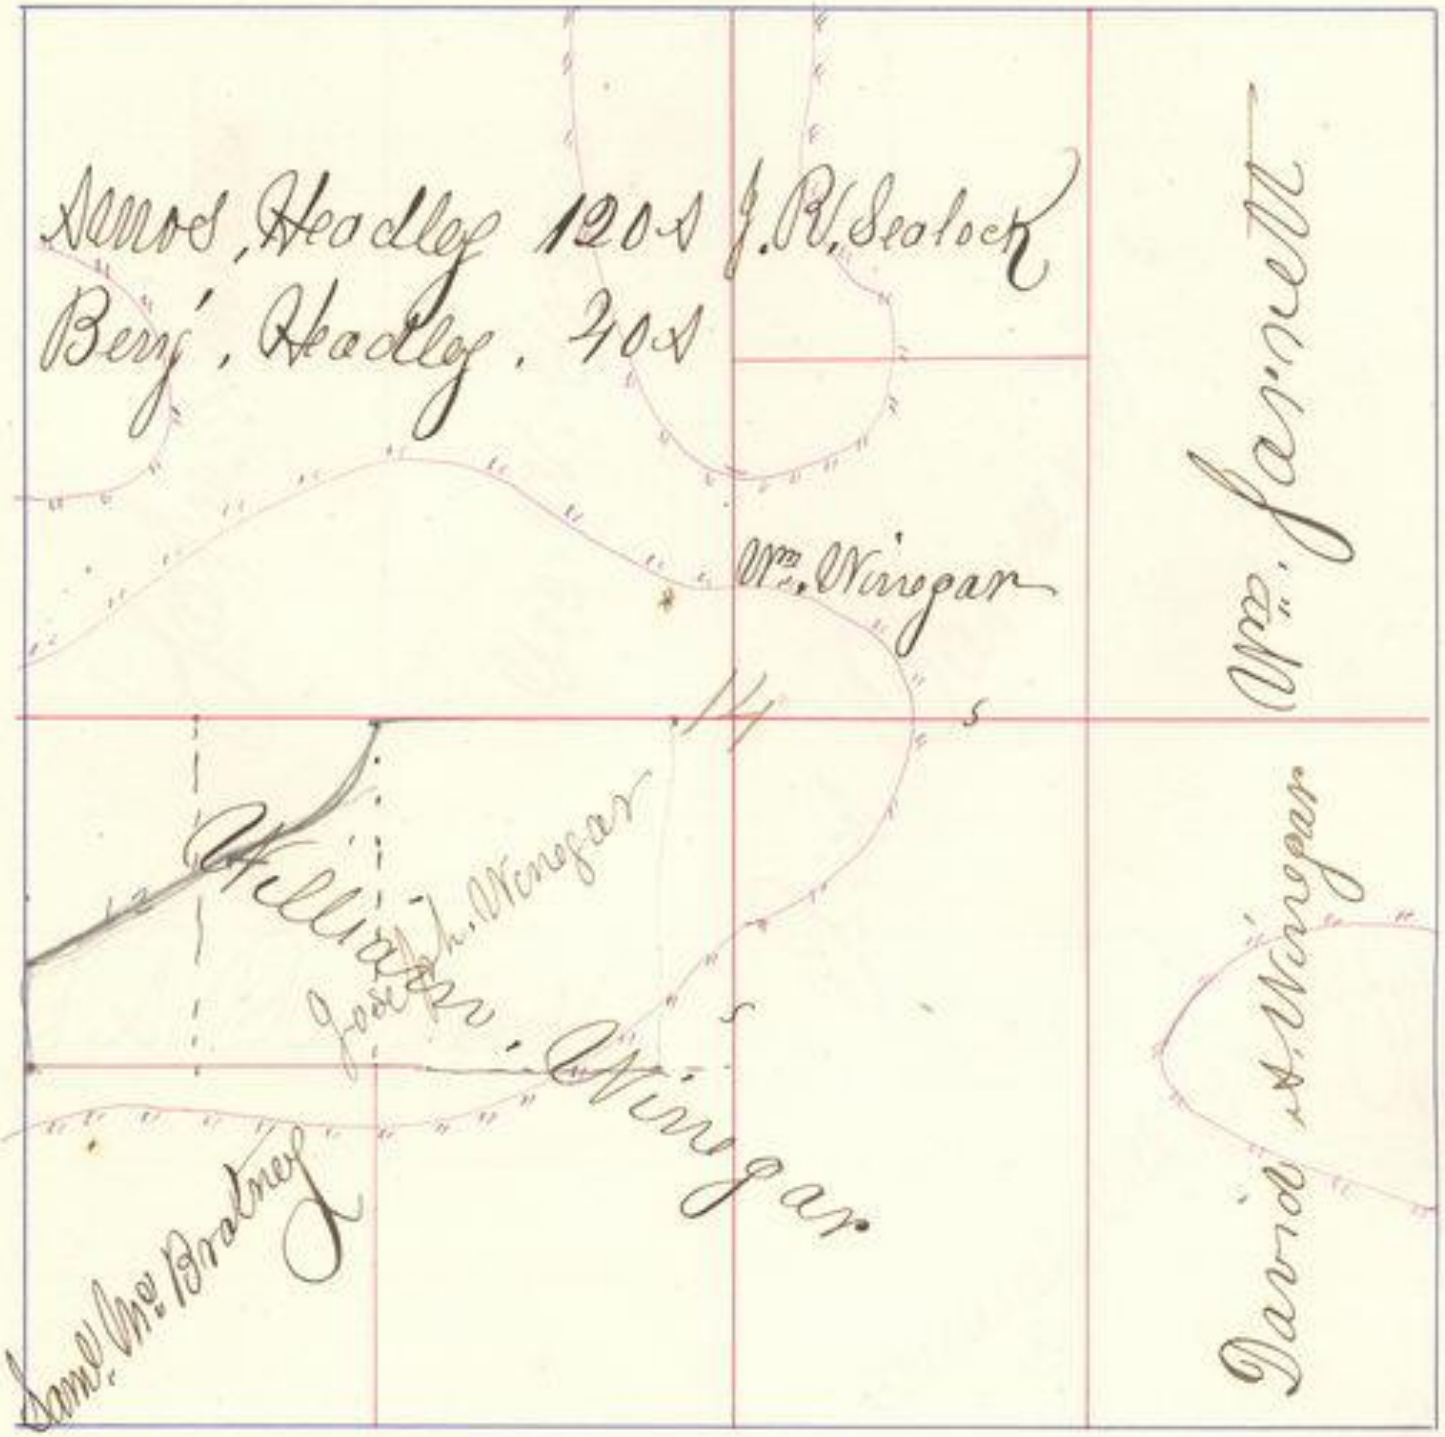 Headley 120 A
Benj. Headley. 40 A
J. R. Sealock
Wm. Garrett
Wm. Winegar
14
S
12
William Winegar
Joseph. Winegar
S
David A. Winegar
Saml. Mc Bratney